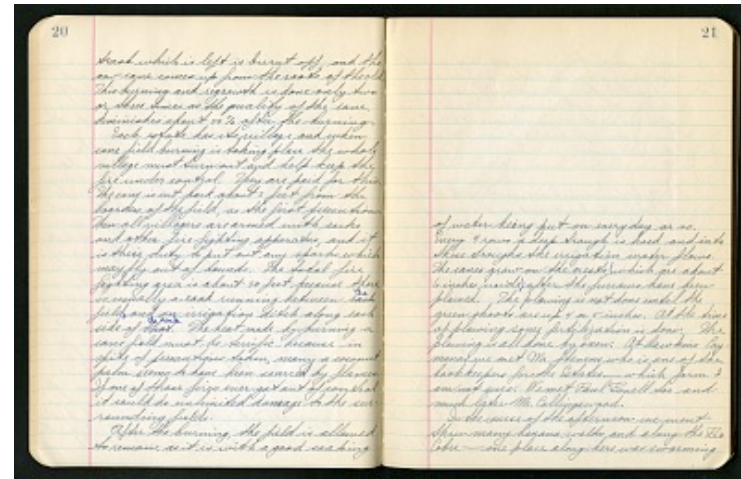 20
trash which is left is burnt off, and the
cane comes up from the roots of the old.
This burning and regrowth is done only two
or three times as the quality of the cane
diminishes about % after the burning.
Each estate has its village and when
cane field burning is taking place the whole
village must turn out and help keep the
fire under control. They are paid for this.
The cane is cut back about feet from the
boarder of the field, as the first precaution
then all villagers are armed with sacks
and other fire fighting apparatus, and it
is there duty to put out any sparks which
may fly out of bounds. The total fire
fighting area is about 20 feet because there
is usually a road running between each
field and an irrigation ditch along each
side of that. The heat made by burning a
cane field must be terrific because in
spite of precautions taken, many a coconut
palm seems to have been seared by flames.
If one of those fires ever got out of control
it could do unlimited damage to the sur-
rounding fields.
After the burning, the field is allowed
to remain as it is with a good soaking
21
of water being put on every day or so.
Every 4 rows a deep trough is hoed and into
these troughs the irrigation water flows.
The canes grow on the crests, which are about
6 inches wide, after the furrows have been
plowed. The plowing is not done until the
green shoots are up 4 or 5 inches. At the time
of plowing some fertilization is done. The
plowing is all done by oxen. At Hawkins Cay
manor we met Mr. who is one of the
bookkeepers for the Estates — which farm I
am not sure. We met Paul too and
much later Mr. Collingwood.
In the course of the afternoon we went
thru many banana walks, and along the Rio
Cobre — one place along here was swarming